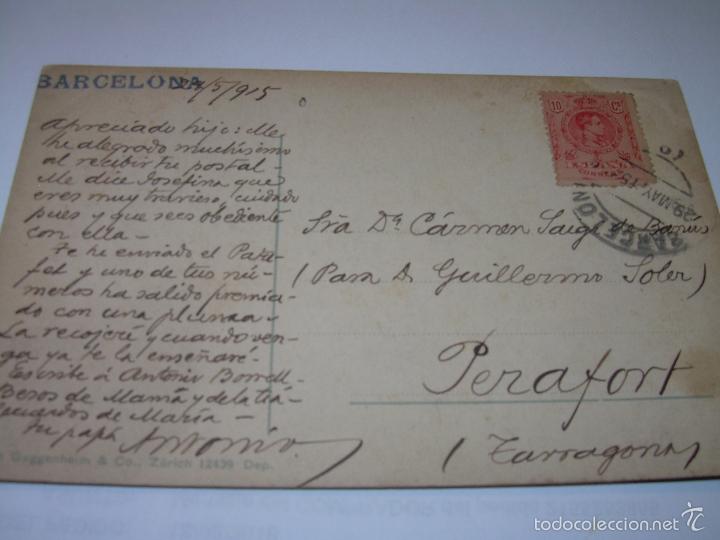 BARCELONA 29/5/915
Apreciado hijo: Me
he alegrado muchísimo
al recibir tu postal –
Me dice Josefina que
eres muy travieso, cuidado
pues y que sees obediente
con ella –
Te he enviado el Patu-
fet y uno de tus nú-
meros ha salido premia-
do con una pluma –
La recojeré y cuando ven-
ga ya te la enseñaré –
Escribe á Antonio Borrell –
Besos de Mamá y de la tia
recuerdos de María –
tu papá Antonio
Guggenheim & Co., Zürich 12439 Dep.
10 Cs
CORREOS
BARCELONA
29 MAY 15
Sra Dª Cármen Saigi de Banús
(Para D. Guillermo Soler)
Perafort
(Tarragona)
todocoleccion.net